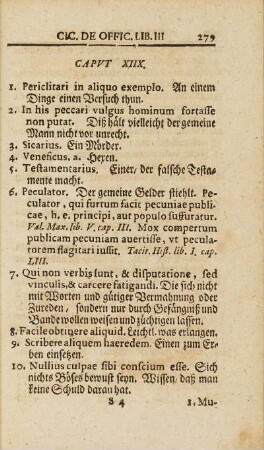 CIC. DE OFFIC. LIB. III 279
CAPVT XIIX.
1. Periclitari in aliquo exemplo. An einem
Dinge einen Versuch thun.
2. In his peccari vulgus hominum fortasse
non putat. Diß hält vielleicht der gemeine
Mann nicht vor unrecht.
3. Sicarius. Ein Mörder.
4. Veneficus. a. Hexen.
5. Testamentarius. Einer/ der falsche Testa-
mente macht.
6. Peculator. Der gemeine Gelder stiehlt. Pe-
culator, qui furtum facit pecuniæ publi-
cae, h. e. principi, aut populo suffuratur.
Val. Max. lib. V. cap. III. Mox compertum
publicam pecuniam avertisse, vt pecula-
torem flagitari iussit. Tacit. Hist. lib. I. cap.
LIII.
7. Qui non verbis sunt, & disputatione, sed
vinculis, & carcere fatigandi. Die sich nicht
mit Worten und gütiger Vermahnung oder
Zureden, sondern nur durch Gefängniß und
Bande wollen weisen und züchtigen lassen.
8. Facile obtigere aliquid. Leichtl. was erlangen.
9. Scribere aliquem haeredem. Einen zum Er-
ben einsetzen.
10. Nullius culpae sibi conscium esse. Sich
nichts Böses bewust seyn. Wissen, daß man
keine Schuld daran hat.
S 4 1. Mu-